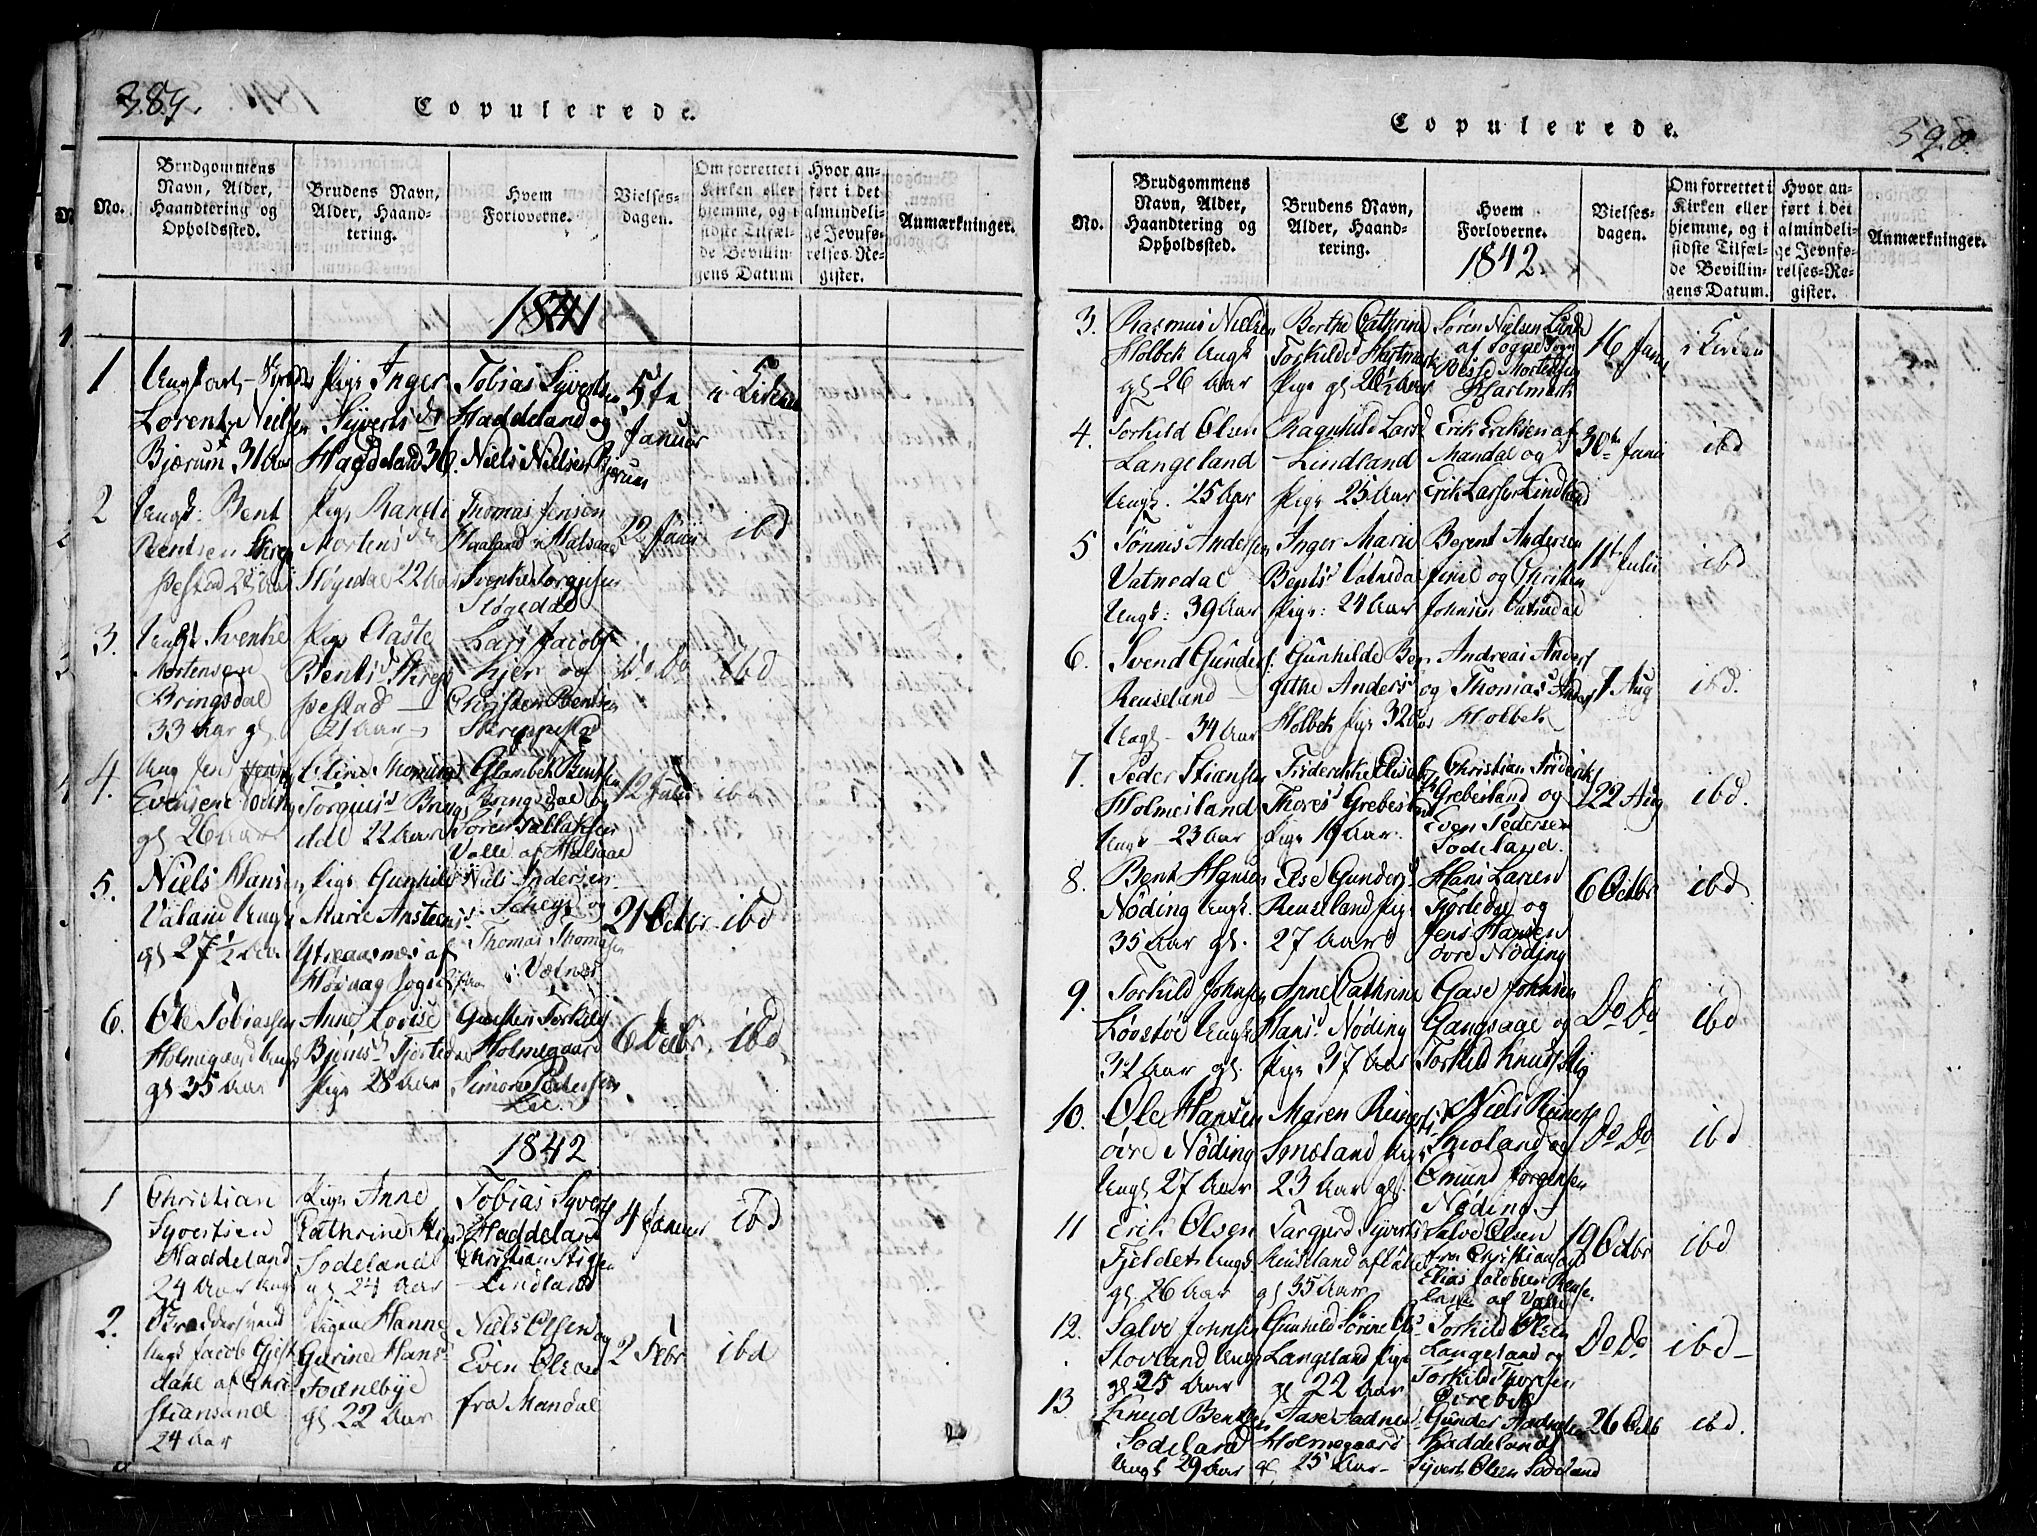 389.
Copulerede.
No.
Brudgommens Navn, Alder, Haandtering og Opholdssted.
Brudens Navn, Alder, Haandtering.
Hvem Forloverne.
Vielsesdagen.
Om forrettet i Kirken eller hjemme, og i sidste Tilfælde Bevillingens Datum
Hvor anført i det almindelige Jevnførelses-Register.
Anmærkninger.
1841
1
Lorents Nielsen
Bjærum 31 Aar
Pige Inger
Syverts dr
Haddeland 36.
Tobias Syverts
Haddeland og
Niels Nielsen Bjærum
5te
Januar
i Kirken
2
Ungk: Bent
Bentsen
Pige Randi
Mortens
Støgedal 22 Aar
Thomas Jensen
Haaland
Støgedal
22 Juni
ibd
3.
Ungk Svenke
Mortensen
Bringsdal
33 Aar gl
Pige Aaste
Bents
21 Aar
Lars Jacobs
og
Christen Bentsen
Do Do
ibd
4.
Ung Jens
Evensen
gl 26 Aar
Eline
Torgius Brings
dal 22 Aar
Bentsen
Bringsdal og
Søren Tallaksen
Valle af Halsaae
12 Juli
ibd
5.
Niels Hansen
Valand Ungk
gl 27 1/2 Aar
Pige Gunhild
Marie Anstens
af
Høivaag Sogn
Niels Andersen
og
Thomas Thomasen
21 Octbr
ibd
6.
Ole Tobiassen
Holmegaard Ungk
gl 35 Aar
Anne Lovise
Pige 28 Aar
Torkils
Holmegaard
Simon Pedersen
Lie.
6 Decbr.
ibd
1842
1
Christian
Syvertsen
Haddeland
24 Aar Ungk
Pige Anne
Cathrine Stigs
Sodeland
gl 24 Aar
Tobias Syverts
Haddeland
Christian Stigsen
Lindland
4 Januar
ibd
2.
Ungk Jacob Gjest
dahl af Chri-
stiansand
24 Aar
Pigen Hanne
Gurine Hans
gl 22 Aar
Niels Olsen og
Even Olsen
fra Mandal
2 Febr
ibd
390.
Copulerede.
No.
Brudgommens Navn, Alder, Haandtering og Opholdssted.
Brudens Navn, Alder, Haandtering.
Hvem Forloverne.
1842
Vielsesdagen.
Om forrettet i Kirken eller hjemme, og i sidste Tilfælde Bevillingens Datum.
Hvor anført i det almindelige Jevnførelses-Register.
Anmærkninger.
3.
Rasmus Nielsen
Holbek Ungk
gl 26 Aar
Berthe Cathrine
Torkilds Hartmark
Pige gl 26 1/2 Aar
Søren Nielsen Lunde
af Sogne Sogn
Mortensen
Hartmark
16 Juni
i Kirken
4.
Torkild Olsen
Langeland
Ungk. 25 Aar
Ragnhild Larsd
Lindland
Pige 25 Aar
Erik Eriksen af
Mandal og
Erik Larsen Lindland
30te Juni
ibd
5
Tønnis Andersen
Vatnedal
Ungk: 39 Aar
Inger Marie
Bents Vatnedal
Pige: 24 Aar
Berent Andersen
og Christen
Johnsen Vatnedal
11te Julii
ibd
6.
Svend Gunders.
Reuseland
Ungk 34 Aar
Gunhilde Ber-
githe Anders
Holbek Pige 32 Aar
Andreas Anders
og Thomas Anders
Holbek
7 Aug
ibd.
7.
Peder Stiansen
Holmesland
Ungk 23 Aar
Friderikke Elisabeth
Thores Grebesland
Pige 19 Aar.
Christian Frideriks
Grebesland og
Even Pedersen
Sodeland.
22 Aug
ibd.
8.
Bent Hansen
Nøding Ungk.
35 Aar gl.
Else Gunders
Reuseland Pige
27 Aar
Hans Larsen
Fjortedal og
Jens Hansen
øvre Nøding
6 Octbr
ibd.
9.
Torkild Johnsen
Løvstøe Ungk
31 Aar gl.
Anne Cathrine
Hans Nøding
Pige 37 Aar
Gase Johnsen
Gangsaae og
Torkild Knuds
Do Do
ibd
10.
Ole Hansen
øvre Nøding
Ungk 27 Aar
Maren Reiers
Smeland Pige
23 Aar gl.
Niels Reiers
Smeland og
Emund Jørgensen
Nøding
Do Do
ibd
11
Erik Olsen
Fjeldet Ungk
gl. 26 Aar
Targerd Syverts
Reuseland af Valle
gl 35 Aar
Salve Olsen
fra Christiansand
Elias Jacobsen Reuse-
land af Valle
19 Octbr
ibd
12.
Salve Johnsen
Stovland Ungk
gl 25 Aar
Gunhild Sørine Ols
Langeland Pige
gl 22 Aar
Torkild Olsen
Langeland og
Torkild Thorsen
Ørebek
Do Do
ibd
13
Knud Bentsen
Sodeland
Ungk 29 Aar
Aase Aadnes
Holmegaard
gl 25 Aar
Gunder Aadnesen
Haddeland
Syvert Olsen Sodeland
26 Octb
ibd.